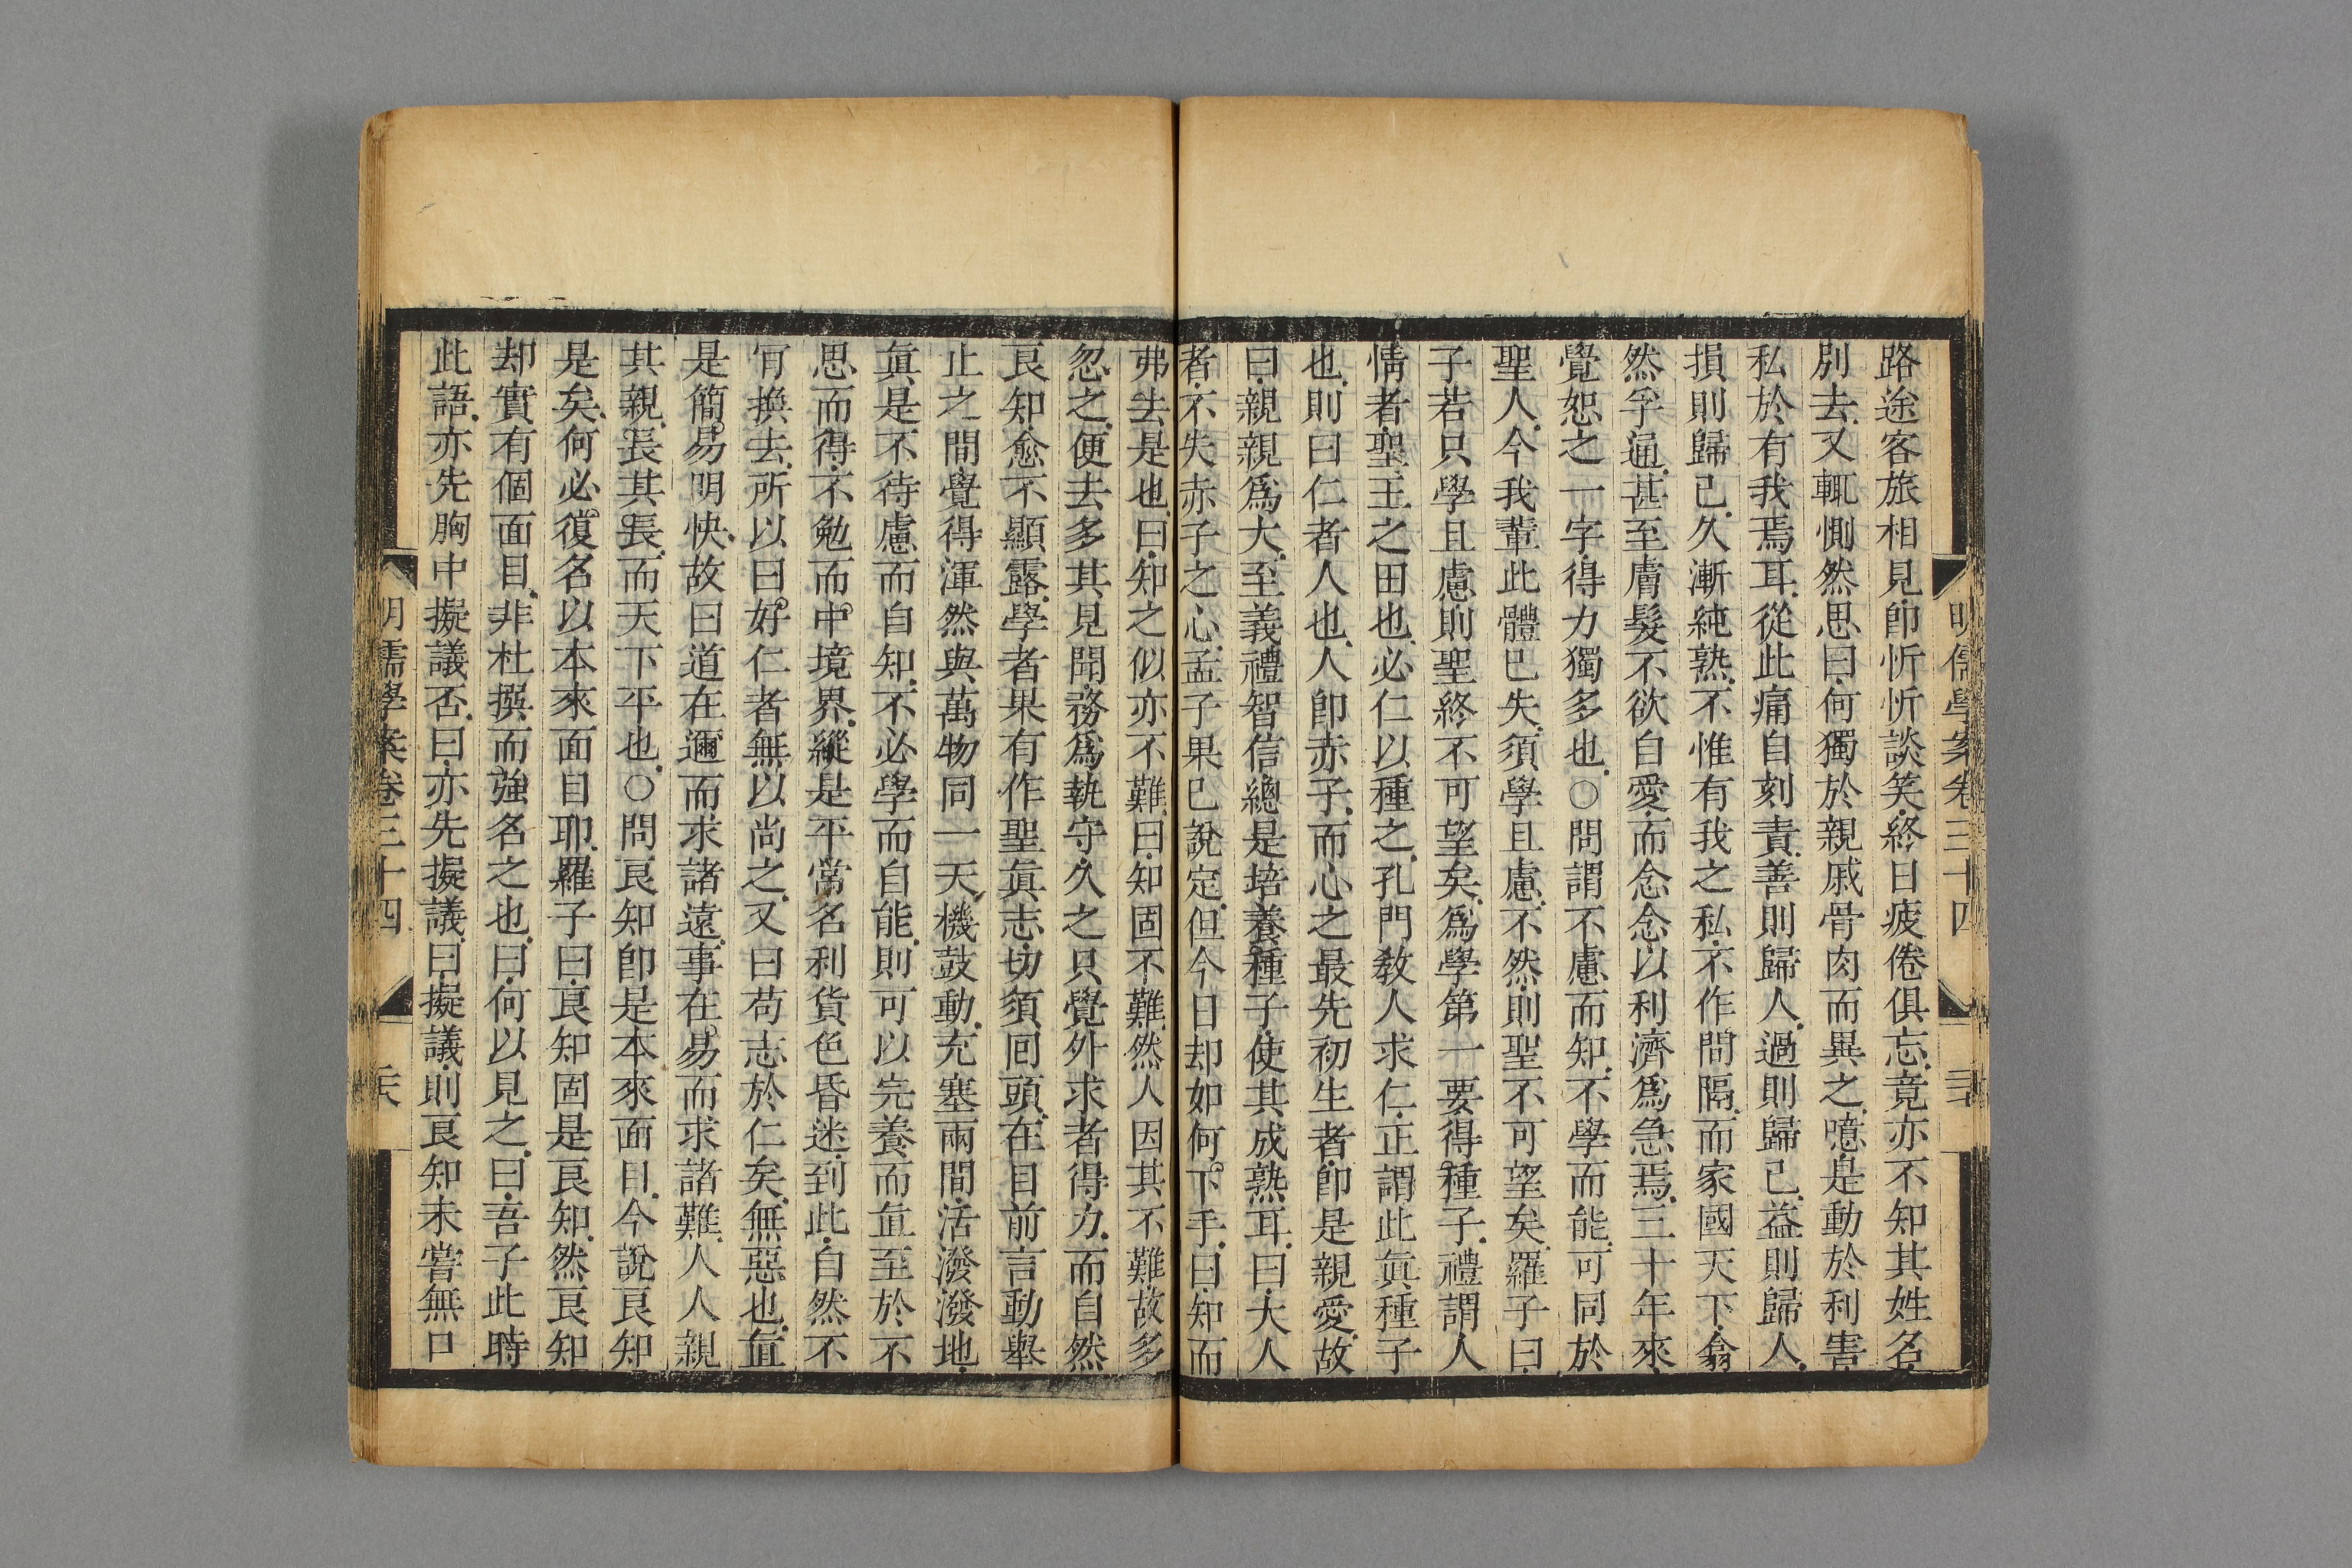 明儒學案卷三十四
路途客旅相見卽忻忻談笑終日疲倦俱忘竟亦不知其姓名
別去又輒惻然思曰何獨於親戚骨肉而異之噫是動於利害
私於有我焉耳從此痛自刻責善則歸人過則歸己益則歸人
損則歸己久漸純熟不惟有我之私不作間隔而家國天下翕
然孚通甚至膚髮不欲自愛而念念以利濟爲急焉三十年來
覺恕之一字得力獨多也○問謂不慮而知不學而能可同於
聖人今我輩此體已失須學且慮不然則聖不可望矣羅子曰
子若只學且慮則聖終不可望矣爲學第一要得種子禮謂人
情者聖王之田也必仁以種之孔門敎人求仁正謂此眞種子
也則曰仁者人也人卽赤子而心之最先初生者卽是親愛故
曰親親爲大至義禮智信總是培養種子使其成熟耳曰大人
者不失赤子之心孟子果已說定但今日却如何下手曰知而
弗去是也曰知之似亦不難曰知固不難然人因其不難故多
忽之便去多其見聞務爲執守久之只覺外求者得力而自然
良知愈不顯露學者果有作聖眞志切須囘頭在目前言動舉
止之間覺得渾然與萬物同一天機鼓動充塞兩間活潑潑地
眞是不待慮而自知不必學而自能則可以完養而直至於不
思而得不勉而中境界縱是平常名利貨色昏迷到此自然不
肯換去所以曰好仁者無以尚之又曰苟志於仁矣無惡也直
是簡易明快故曰道在邇而求諸遠事在易而求諸難人人親
其親長其長而天下平也○問良知卽是本來面目今說良知
是矣何必復名以本來面目耶羅子曰良知固是良知然良知
却實有個面目非杜撰而強名之也曰何以見之曰吾子此時
此語亦先胸中擬議否曰亦先擬議曰擬議則良知未嘗無口
明儒學案卷三十四